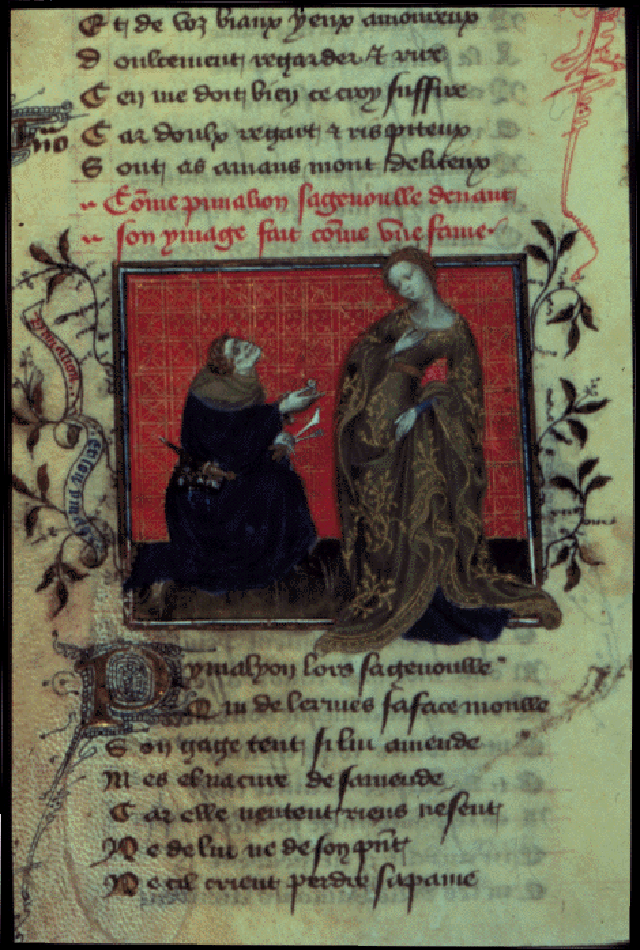 Et de voz biaux yeux amoureux
Doulcement regarder & rire
Cen me doit bien ce croy suffire
Car doulx regart & ris piteux
Sont as amans mont deliteux
Cōme pimalion sagenoulle deuant
son ymage fait cōme vne fame
Pimalion
et son ymage
Pymalyon lors sagenoulle
Qui de lermes sa face moulle
Son gage tent si lui amende
Mes el na cure de samende
Car elle nentent riens ne sent
Ne de lui ne de son pñt
Ne cil crient perdre sa paine